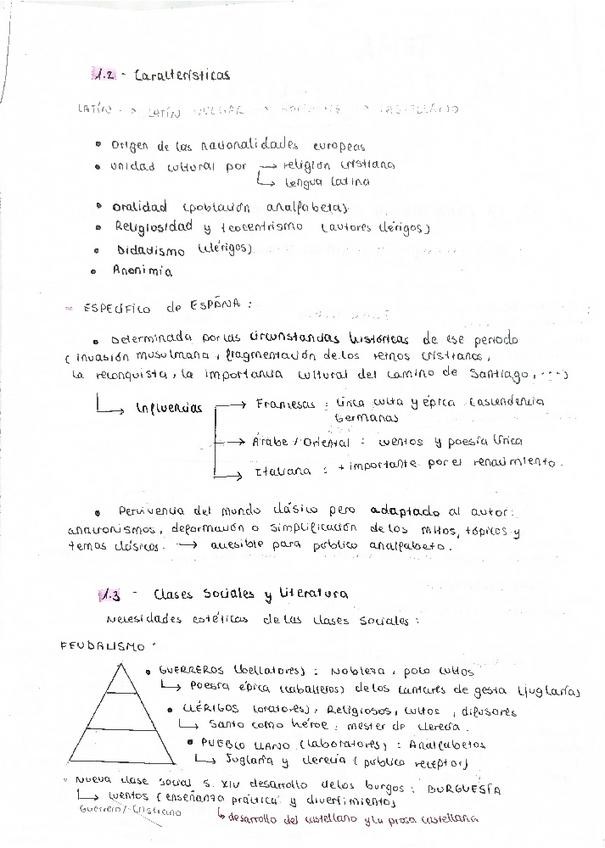 1.2 - Características
LATÍN -> LATÍN VULGAR -> -> CASTELLANO
• Origen de las nacionalidades europeas
• unidad cultural por → religión cristiana
↳ lengua latina
• oralidad (población analfabeta)
• Religiosidad y teocentrismo (autores clérigos)
• Didactismo (clérigos)
• Anonimia
- ESPECÍFICO de ESPAÑA:
• Determinada por las circunstancias históricas de ese periodo
(invasión musulmana, fragmentación de los reinos cristianos,
la reconquista, la importancia cultural del camino de Santiago, ...)
↳ Influencias → Francesas: lírica culta y épica (ascendencia
germanas
→ Árabe / Oriental: cuentos y poesía lírica
→ Italiana: + importante por el renacimiento.
• Pervivencia del mundo clásico pero adaptado al autor:
anacronismos, deformación o simplificación de los mitos, tópicos y
temas clásicos. → accesible para público analfabeto.
1.3 - Clases Sociales y Literatura
Necesidades estéticas de las clases sociales:
FEUDALISMO:
• GUERREROS (bellatores): Nobleza, poco cultos
↳ Poesía épica (caballeros) de los cantares de gesta (juglaría)
• CLÉRIGOS (oratores), Religiosos, cultos, difusores
↳ Santo como héroe: mester de clerecía.
• PUEBLO LLANO (laboratores): Analfabetos
↳ Juglaría y clerecía (público receptor)
• Nueva clase social s. XIV desarrollo de los burgos: BURGUESÍA
↳ cuentos (enseñanza práctica y divertimiento)
Guerrero/Cristiano ↳ desarrollo del castellano y la prosa castellana